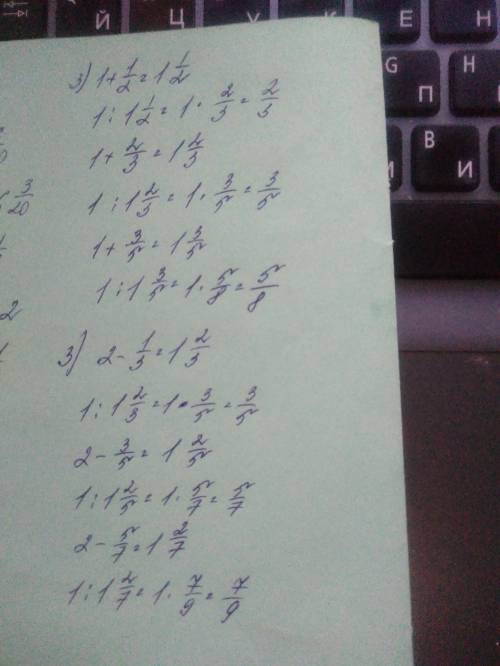 Й Ц У К Е Н
G П
В И
3) 1+1/2=1 1/2
1:1 1/2=1·2/3=2/3
1+2/3=1 2/3
1:1 2/3=1·3/5=3/5
1+3/5=1 3/5
1:1 3/5=1·5/8=5/8
3) 2-1/3=1 2/3
1:1 2/3=1·3/5=3/5
2-3/5=1 2/5
1:1 2/5=1·5/7=5/7
2-5/7=1 2/7
1:1 2/7=1·7/9=7/9
3/20
2